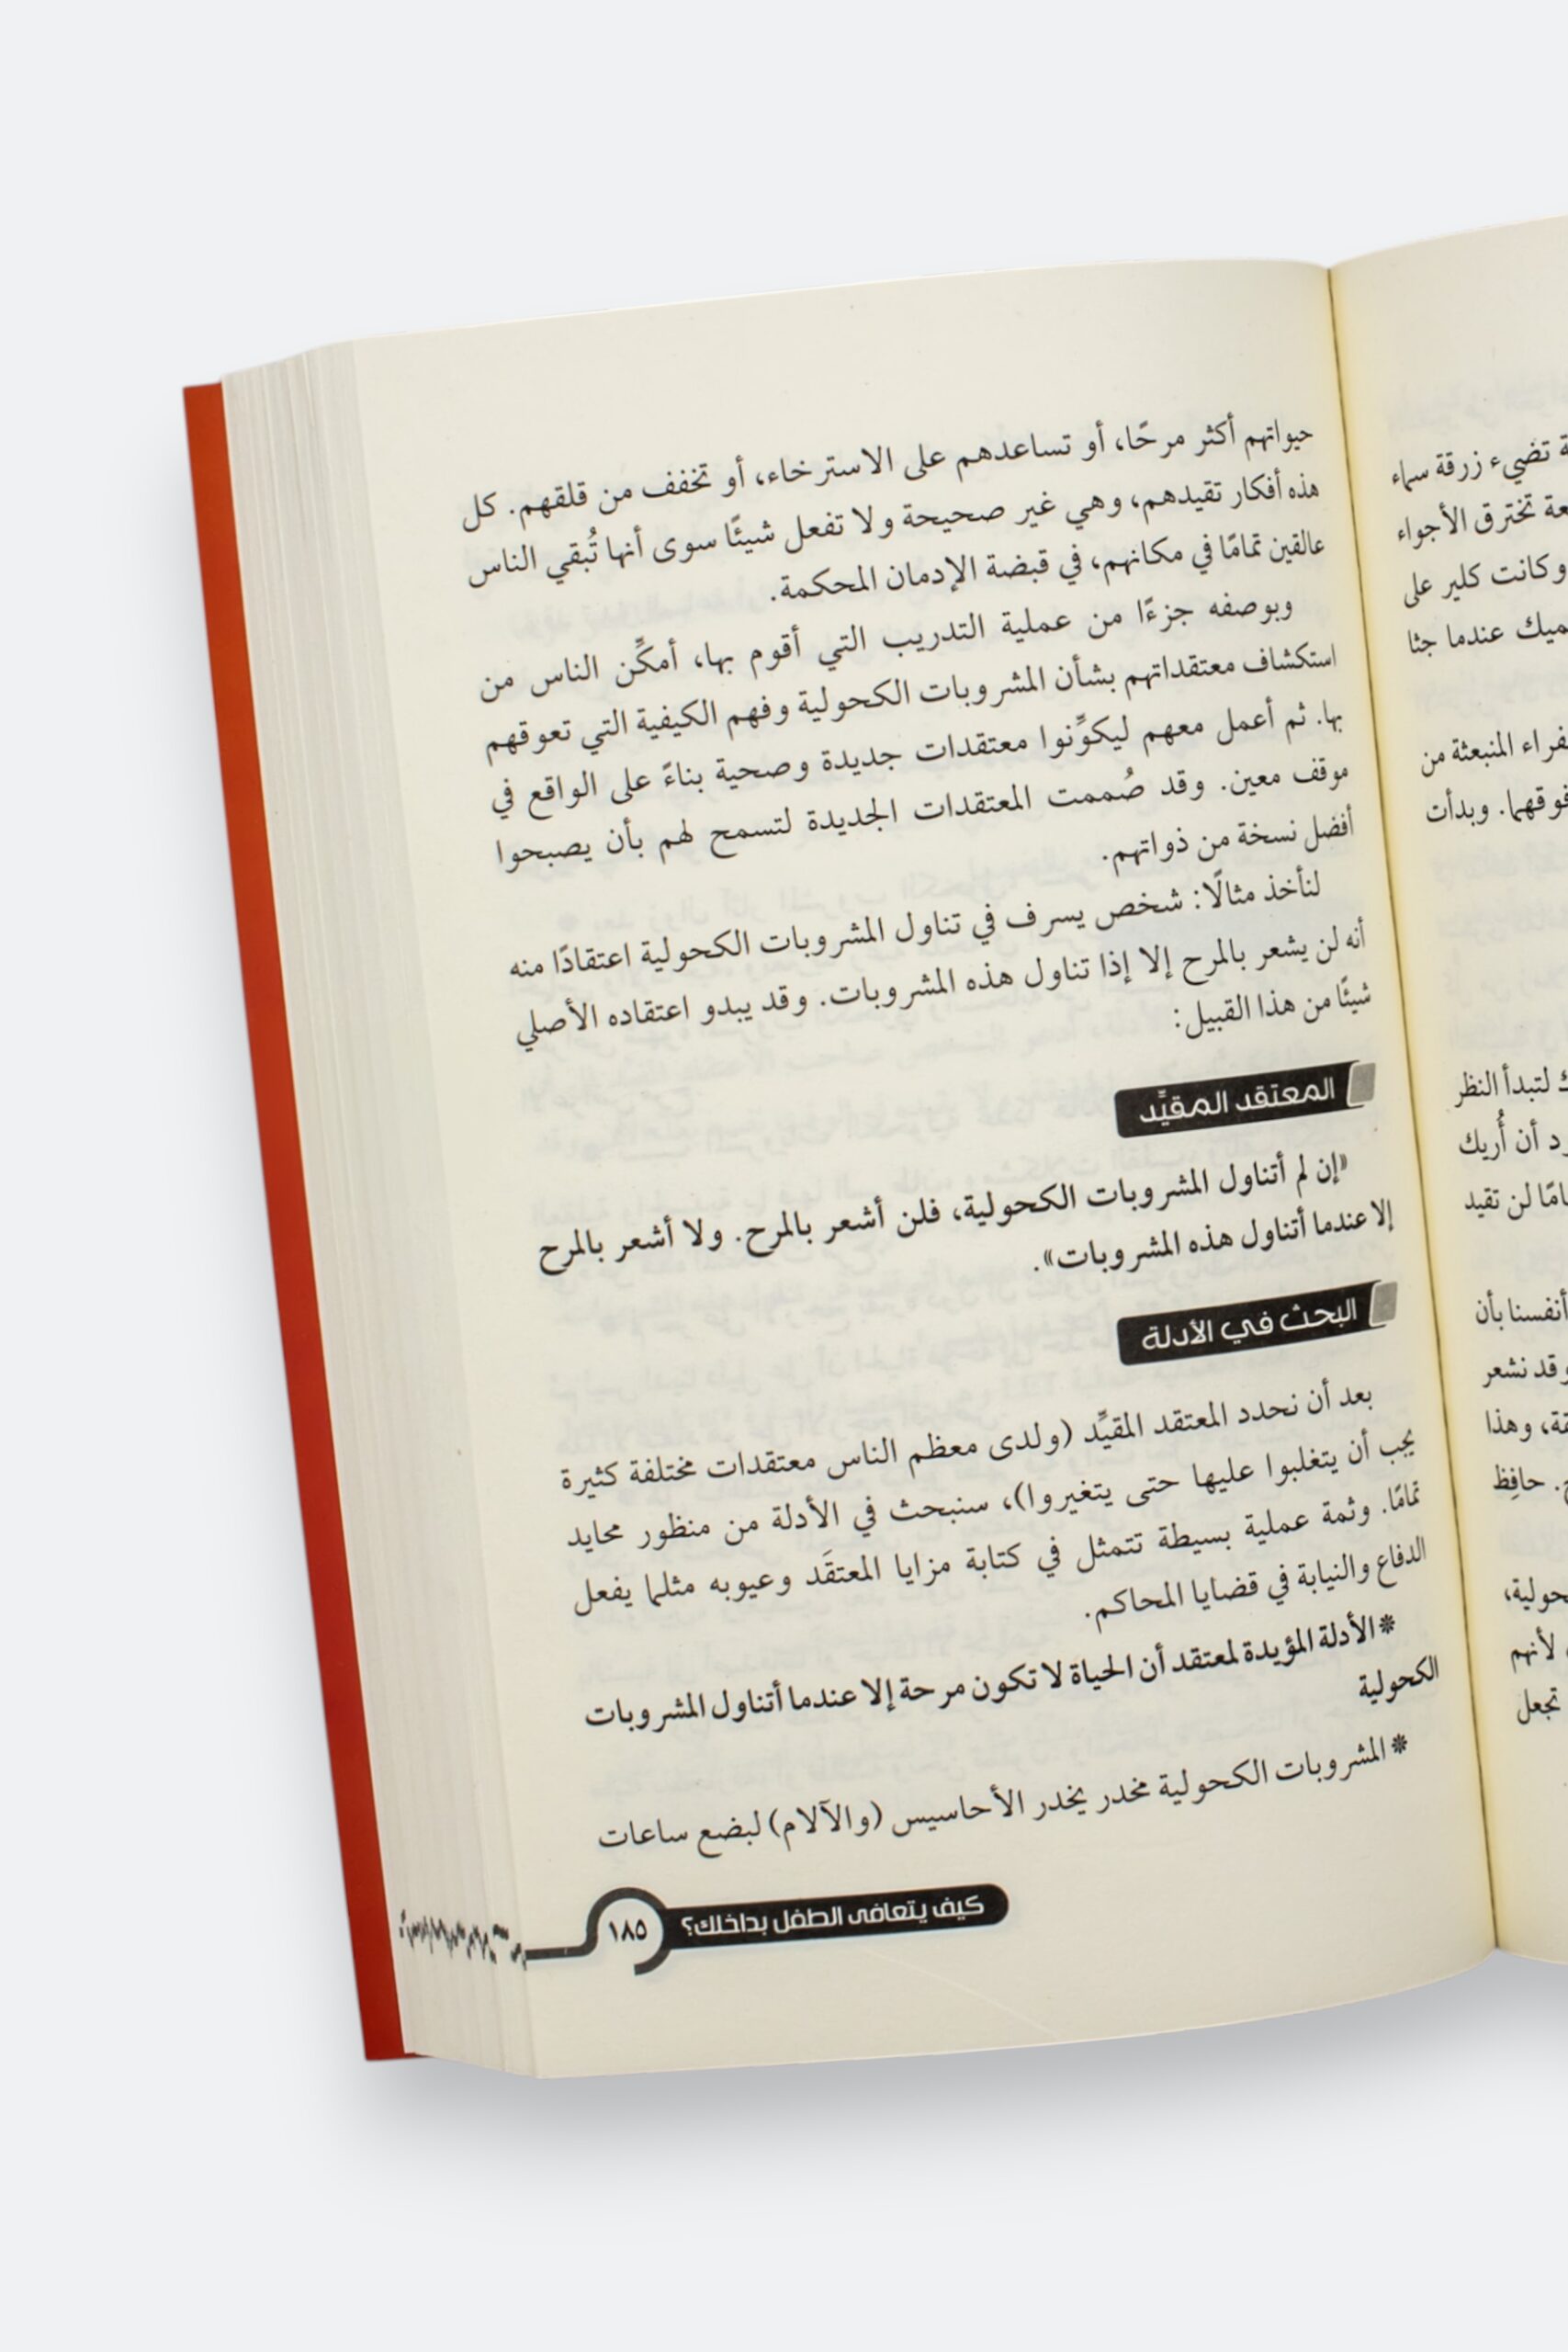 حيواتهم أكثر مرحًا، أو تساعدهم على الاسترخاء، أو تخفف من قلقهم. كل
هذه أفكار تقيدهم، وهي غير صحيحة ولا تفعل شيئًا سوى أنها تُبقي الناس
عالقين تمامًا في مكانهم، في قبضة الإدمان المحكمة.
وبوصفه جزءًا من عملية التدريب التي أقوم بها، أمكِّن الناس من
استكشاف معتقداتهم بشأن المشروبات الكحولية وفهم الكيفية التي تعوقهم
بها. ثم أعمل معهم ليكوِّنوا معتقدات جديدة وصحية بناءً على الواقع في
موقف معين. وقد صُممت المعتقدات الجديدة لتسمح لهم بأن يصبحوا
أفضل نسخة من ذواتهم.
لنأخذ مثالًا: شخص يسرف في تناول المشروبات الكحولية اعتقادًا منه
أنه لن يشعر بالمرح إلا إذا تناول هذه المشروبات. وقد يبدو اعتقاده الأصلي
شيئًا من هذا القبيل:
المعتقد المقيِّد
«إن لم أتناول المشروبات الكحولية، فلن أشعر بالمرح. ولا أشعر بالمرح
إلا عندما أتناول هذه المشروبات».
البحث في الأدلة
بعد أن نحدد المعتقد المقيِّد (ولدى معظم الناس معتقدات مختلفة كثيرة
يجب أن يتغلبوا عليها حتى يتغيروا)، سنبحث في الأدلة من منظور محايد
تمامًا. وثمة عملية بسيطة تتمثل في كتابة مزايا المعتقَد وعيوبه مثلما يفعل
الدفاع والنيابة في قضايا المحاكم.
* الأدلة المؤيدة لمعتقد أن الحياة لا تكون مرحة إلا عندما أتناول المشروبات
الكحولية
* المشروبات الكحولية مخدر يخدر الأحاسيس (والآلام) لبضع ساعات
كيف يتعافى الطفل بداخلك؟
١٨٥
تضيء زرقة سماء
تخترق الأجواء
وكانت كلير على
عندما جثا
المنبعثة من
فوقهما. وبدأت
لتبدأ النظر
أن أُريك
لن تقيد
أنفسنا بأن
وقد نشعر
وهذا
حافِظ
لأنهم
تجعل